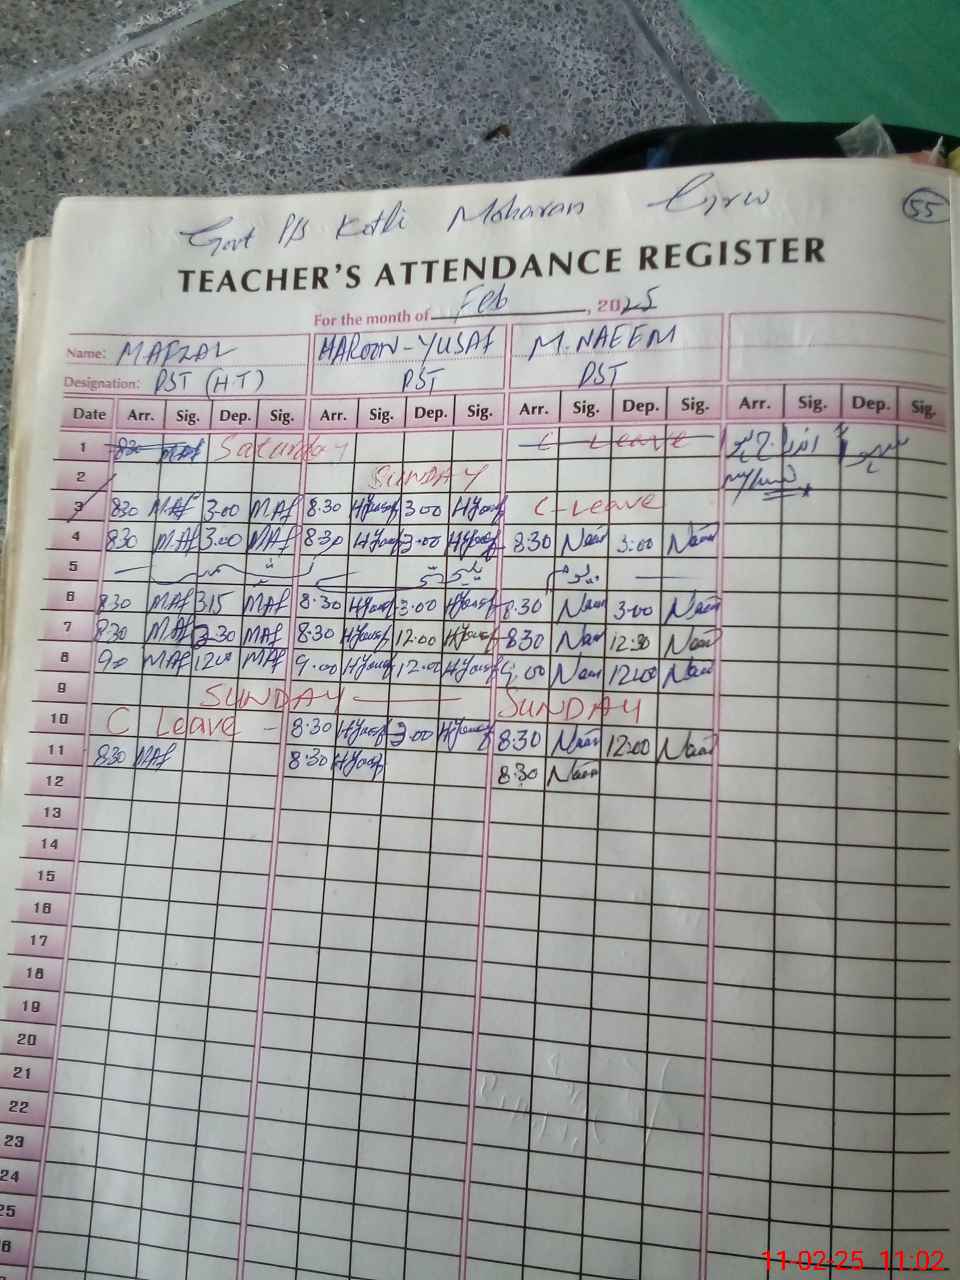 Govt P/S Kotli Moharan Grw
55
TEACHER'S ATTENDANCE REGISTER
For the month of Feb, 2025
Name: M AFZAL HAROON-YUSAF M.NAEEM
Designation: PST (H.T) PST PST
Date Arr. Sig. Dep. Sig. Arr. Sig. Dep. Sig. Arr. Sig. Dep. Sig. Arr. Sig. Dep. Sig.
1 830 MAf Saturday C Leave
2 SUNDAY
3 830 MAf 3-00 MAf 8.30 HYousf 3 00 HYousf C-Leave
4 830 MAf 3.00 MAf 8-30 HYousf 3.00 HYousf 8.30 Naeem 3:00 Naeem
5
6 830 MAf 315 MAf 8.30 HYousf 3.00 HYousf 8.30 Naeem 3.00 Naeem
7 830 MAf 2-30 MAf 8:30 HYousf 12.00 HYousf 8:30 Naeem 12:30 Naeem
8 900 MAf 1200 MAf 9.00 HYousf 12.00 HYousf 9.00 Naeem 12.00 Naeem
9 SUNDAY SUNDAY
10 C Leave - 8.30 HYousf 3.00 HYousf 8:30 Naeem 12:00 Naeem
11 830 MAf 8:30 HYousf 8:30 Naeem
12
13
14
15
16
17
18
19
20
21
22
23
24
25
26
11-02-25 11:02